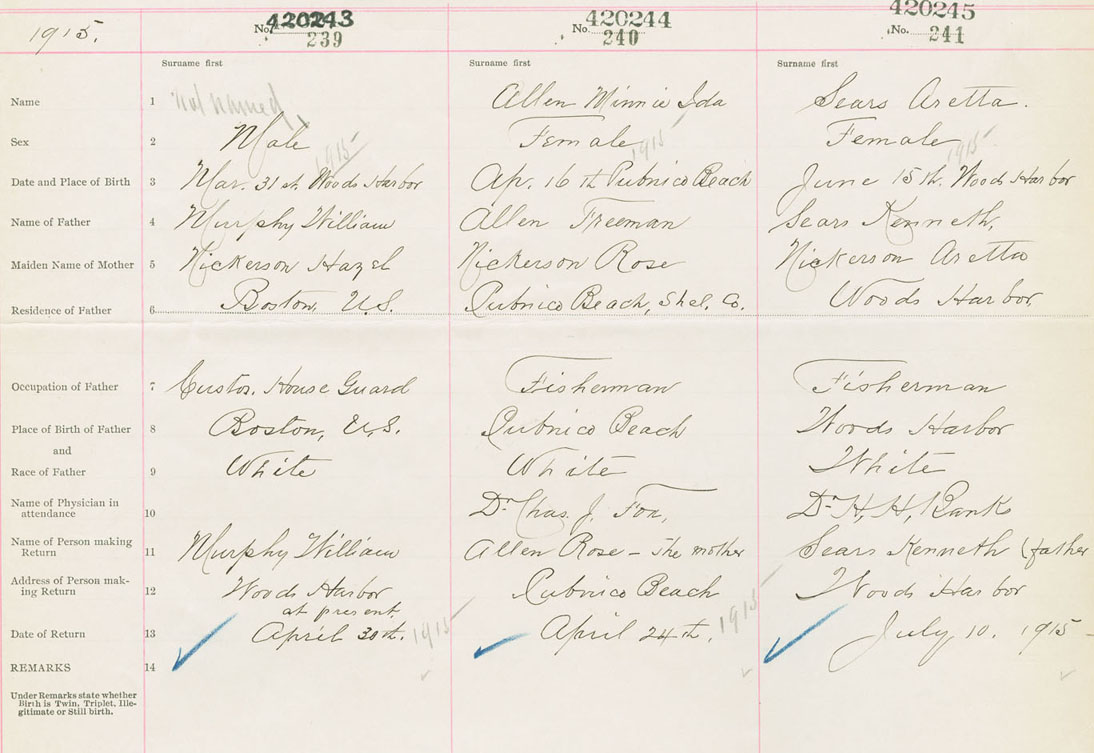 1915.
420243 420244 420245
No. 239 No. 240 No. 241
Surname first Surname first Surname first
Name 1 Not named Allen Minnie Ida Sears Aretta.
Sex 2 Male Female Female
1915 1915 1915
Date and Place of Birth 3 Mar. 31st, Woods Harbor Apr. 16th Pubnico Beach June 15th. Woods Harbor
Name of Father 4 Murphy William Allen Freeman Sears Kenneth,
Maiden Name of Mother 5 Nickerson Hazel Nickerson Rose Nickerson Aretta
Residence of Father 6 Boston, U.S. Pubnico Beach, Shel. Co. Woods Harbor
Occupation of Father 7 Custos. House Guard Fisherman Fisherman
Place of Birth of Father 8 Boston, U.S. Pubnico Beach Woods Harbor
and
Race of Father 9 White White White
Name of Physician in
attendance 10 Dr Chas. J. Fox, Dr H. H. Banks
Name of Person making
Return 11 Murphy William Allen Rose – The mother Sears Kenneth (father
Address of Person mak-
ing Return 12 Woods Harbor Pubnico Beach Woods Harbor
at present.
Date of Return 13 April 30th. 1915 April 24th, 1915 July 10. 1915 –
REMARKS 14
Under Remarks state whether
Birth is Twin, Triplet, Ille-
gitimate or Still birth.